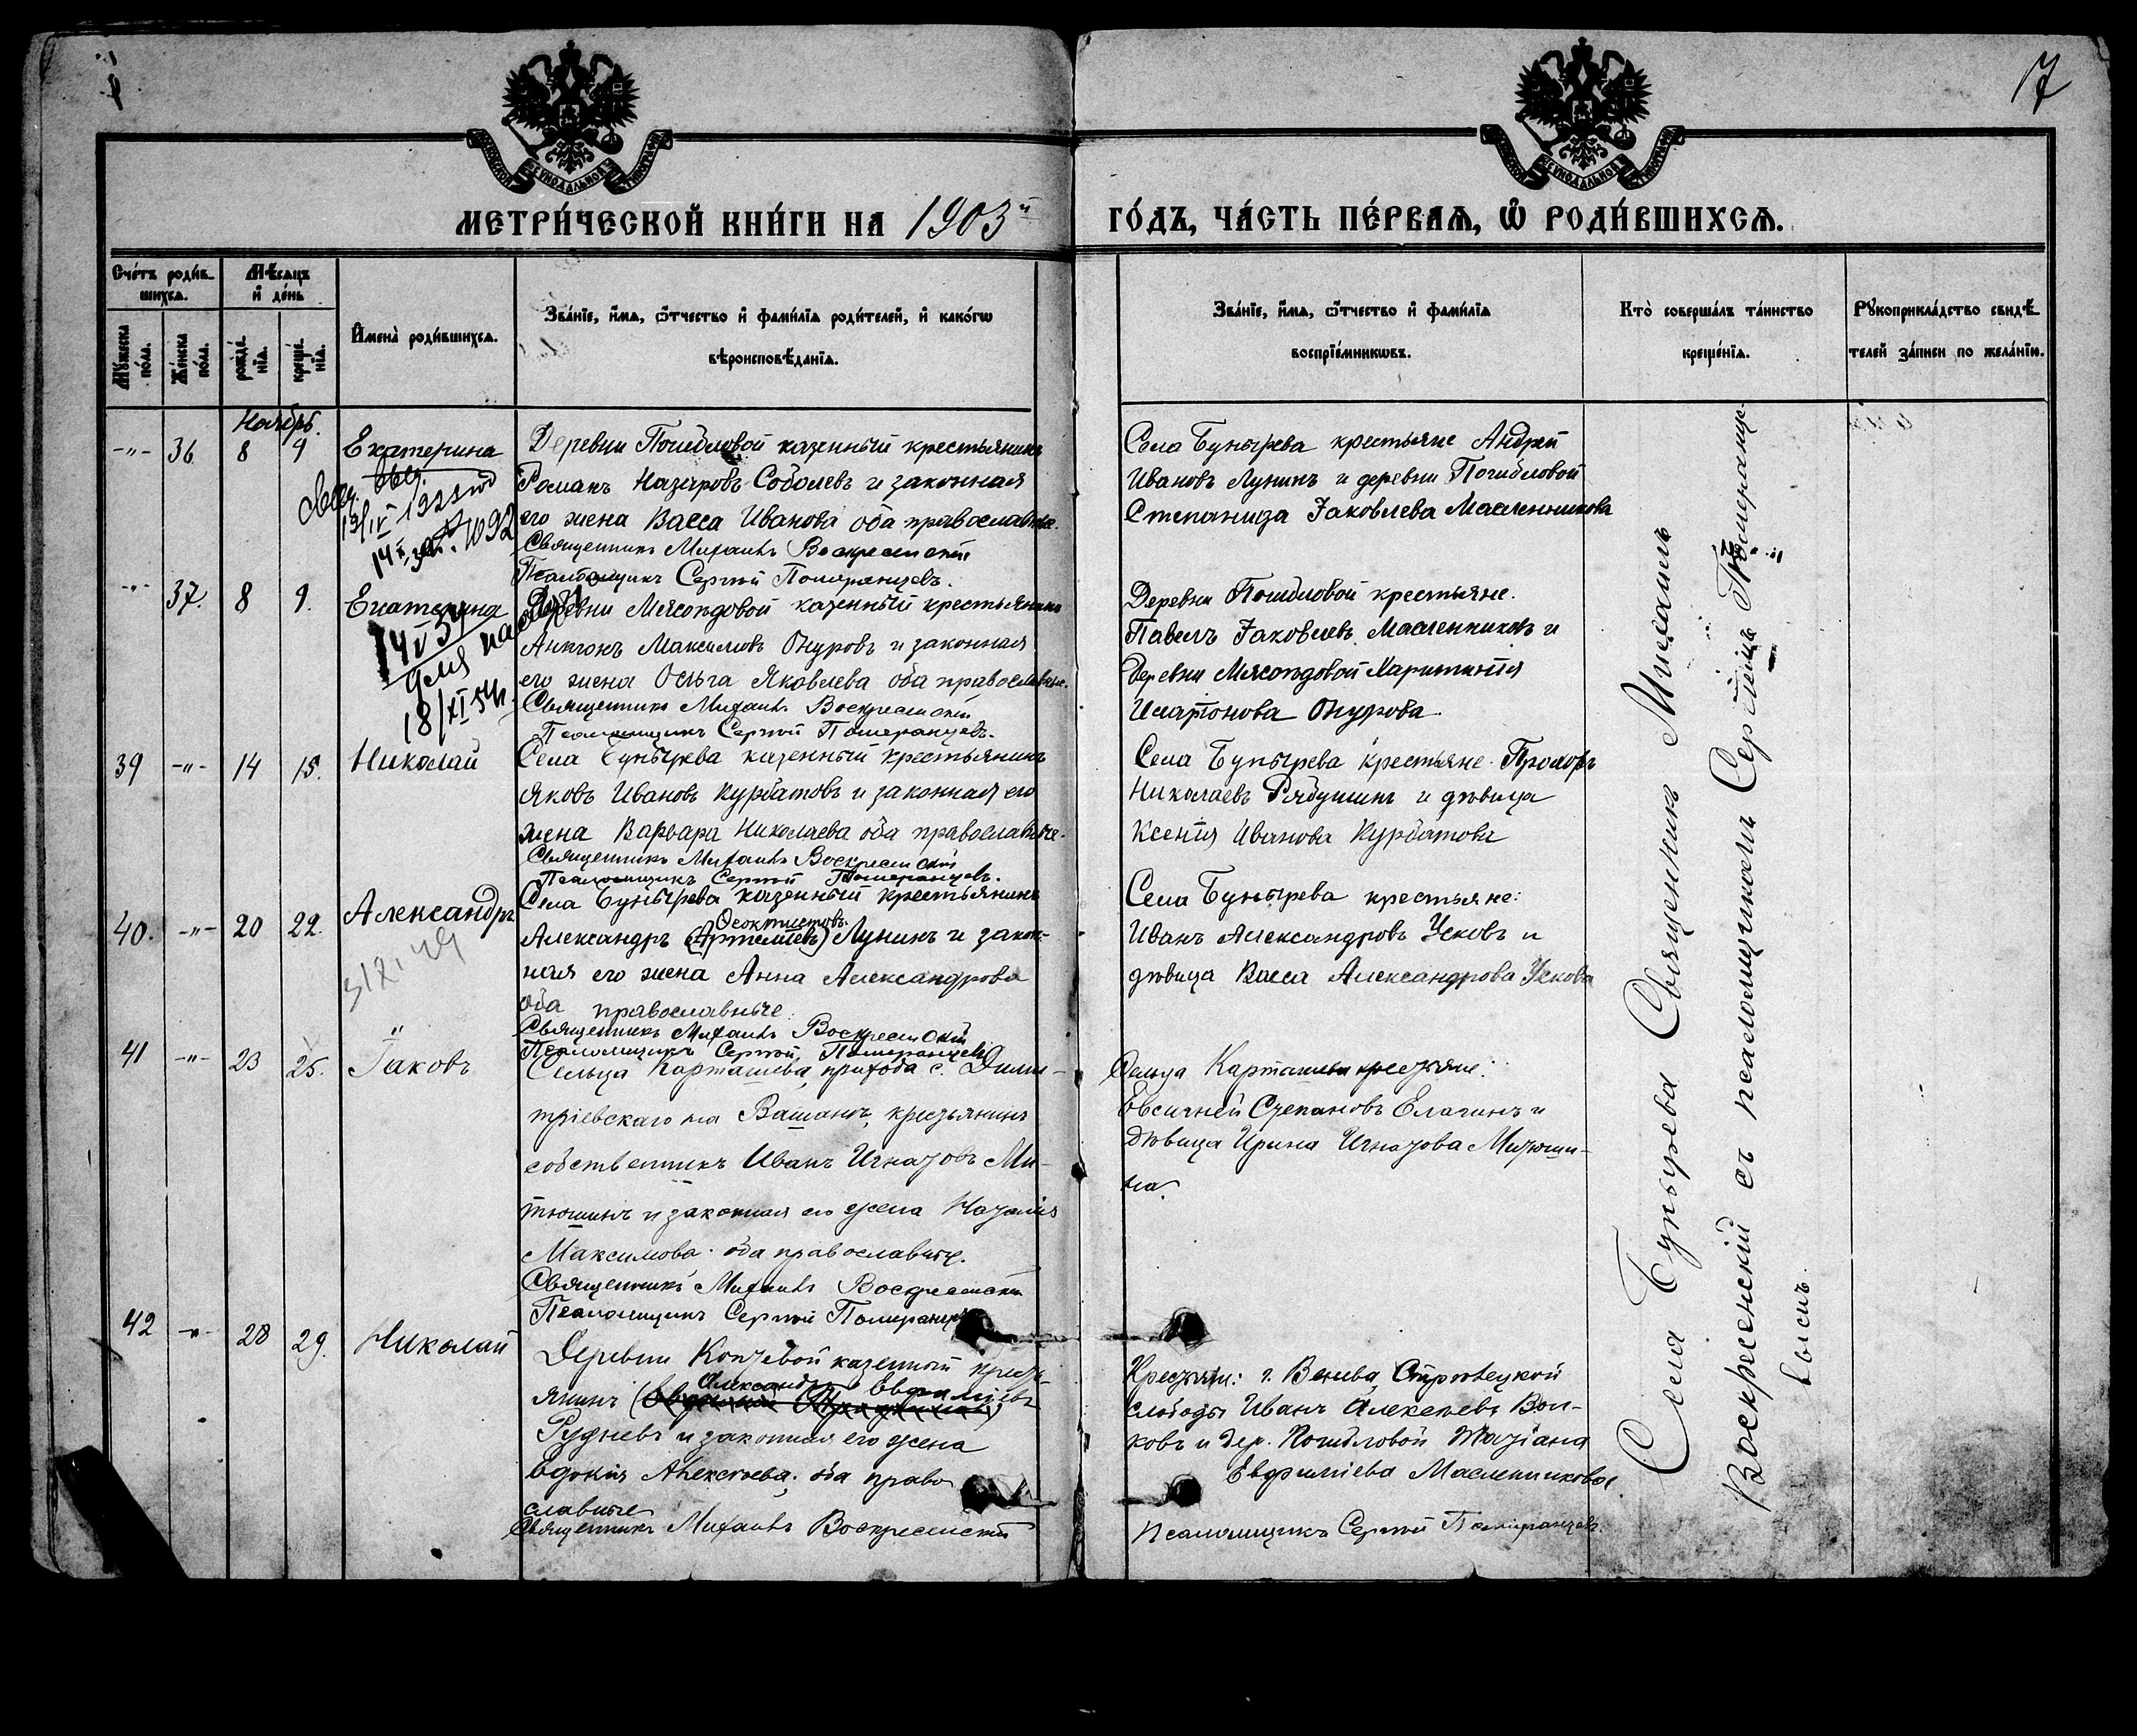 17
МЕТРИ́ЧЕСКОЙ КНИ́ГИ НА 1903й
ГО́ДЪ, ЧА́СТЬ ПЕ́РВАѦ, Ѿ РОДИ́ВШИХСѦ.
Сче́тъ роди́в-
шихсѧ.
Мꙋ́жеска по́ла.
Же́нска по́ла.
Мѣ́сѧцъ
и҆ де́нь
рожде́нїѧ.
креще́нїѧ.
И҆мена̀ роди́вшихсѧ.
Зва́нїе, и҆́мѧ, ѻ҆́тчество и҆ фами́лїѧ роди́телей, и҆ како́гѡ
вѣроисповѣ́данїѧ.
Зва́нїе, и҆́мѧ, ѻ҆́тчество и҆ фами́лїѧ
воспрїе́мникѡвъ.
Кто̀ соверша́лъ та́инство
креще́нїѧ.
Рꙋкоприкла́дство свидѣ́-
телей за́писи по жела́нїю.
Ноябрь.
-"- 36. 8 9 Екатерина
Деревни Погибловой казенный крестьянинъ
Романъ Назаровъ Соболевъ и законная
его жена Васса Ивановa оба православные.
Священникъ Михаилъ Воскресенскій
Псаломщикъ Сергей Померанцевъ.
Села Бунырева крестьяне Андрей
Ивановъ Лунинъ и деревни Погибловой
Степанида Іаковлева Масленникова
выд.
-"- 37. 8 9. Екатерина
Деревни Мясоѣдовой казенный крестьянинъ
Антонъ Максимовъ Онуровъ и законная
его жена Ольга Яковлева оба православные.
Священникъ Михаилъ Воскресенскій
Псаломщикъ Сергей Померанцевъ.
Деревни Погибловой крестьяне.
Павелъ Іаковлевъ Масленниковъ и
деревни Мясоѣдовой Харитинія
Онурова
для
18/XI 54г.
39 -"- 14 15. Николай
Села Бунырева казенный крестьянинъ
Яковъ Ивановъ Курбатовъ и законная его
жена Варвара Николаева оба православные.
Священникъ Михаилъ Воскресенскій
Псаломщикъ Сергей Померанцевъ.
Села Бунырева крестьяне Прохоръ
Николаевъ Рябушинъ и дѣвица
Ксенія Иванова Курбатова
40. -"- 20 22. Александръ
Села Бунырева казенный крестьянинъ
Ѳеоктистовъ
Александръ (Артемьевъ) Лунинъ и закон-
ная его жена Анна Александрова
оба православные.
Священникъ Михаилъ Воскресенскій
Псаломщикъ Сергей Померанцевъ
Села Бунырева крестьяне:
Иванъ Александровъ Усковъ и
дѣвица Васса Александрова Ускова
41 -"- 23 25. Іаковъ
Сельца Карташева, прихода с. Дими-
тріевскаго на Вашанѣ, крестьянинъ
собственникъ Иванъ Игнатовъ Ми-
тюшинъ и законная его жена Наталія
Максимова. оба православные.
Священникъ Михаилъ Воскресенскій
Псаломщикъ Сергей Померанцевъ
Сельца Карташева крестьяне:
Евсигней Степановъ Елагинъ и
дѣвица Ирина Игнатова Митюши-
на.
42 -"- 28 29. Николай
Деревни Коптевой казенный кресть-
Александръ Евфиміевъ
янинъ
Рудневъ и законная его жена
Евдокія Алексѣева. оба право
славные
Священникъ Михаилъ Воскресенскій
Крестьяне: г. Венева, Стрѣлецкой
слободы Иванъ Алексѣевъ Вол-
ковъ и дер. Погибловой Татіана
Евфиміева Масленникова.
Псаломщикъ Сергей Померанцевъ.
Села Бунырева Священникъ Михаилъ
Воскресенскій съ псаломщикомъ Сергіемъ Померанце-
вымъ.